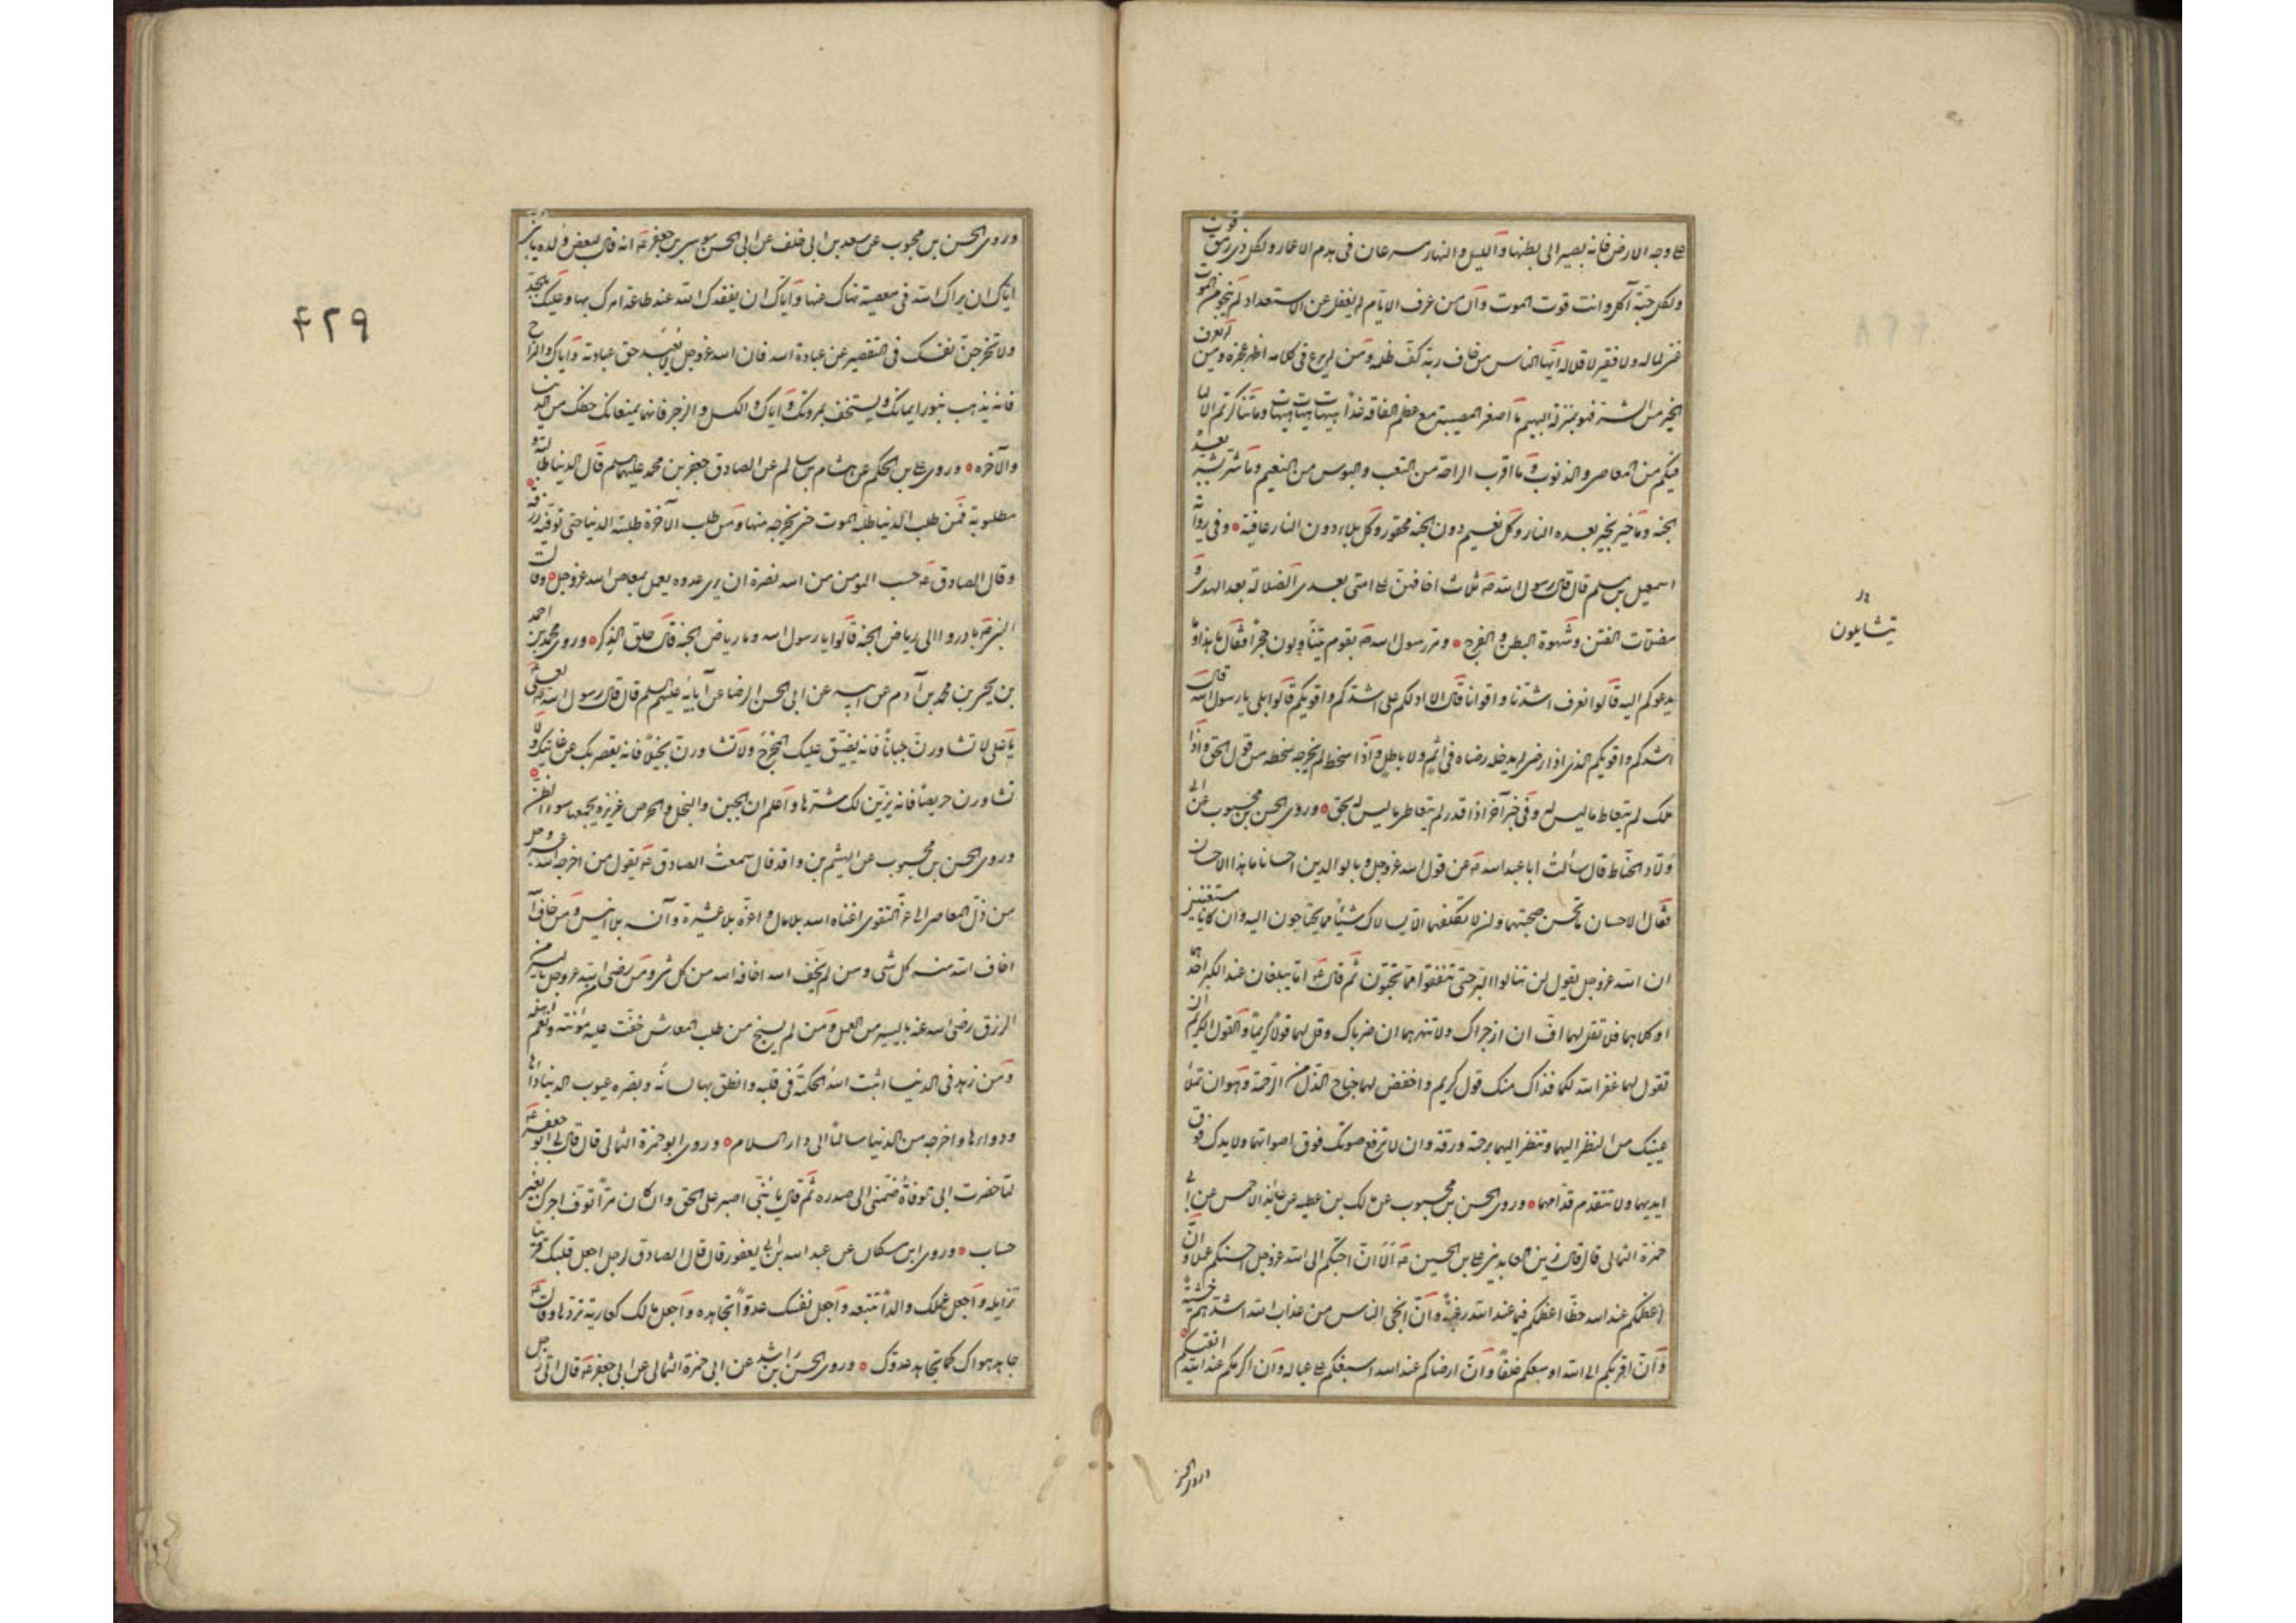 على وجه الارض فانه يصير الى بطنها والليل والنهار مسرعان فى هدم الاعمار ولكل ذى رمق قوت
ولكل حبة آكل وانت قوت الموت وان من عرف الايام لم يغفل عن الاستعداد لم ينجو من الموت
غنى لماله ولا فقير لاقلاله ايها الناس من خاف ربه كف ظلمه ومن لم يرع فى كلامه اظهر هجره ومن لم يعرف
الخير من الشر فهو بمنزلة البهيم ما اصغر المصيبة مع عظم الفاقة غدا هيهات هيهات وما تناكرتم الا لما
فيكم من المعاصى والذنوب وما اقرب الراحة من التعب والبوس من النعيم وما شر بشر بعده
الجنة وما خير بخير بعده النار وكل نعيم دون الجنة محقور وكل بلاء دون النار عافية وفى رواية
اسمعيل بن مسلم قال قال رسول الله ص ثلاث اخافهن على امتى بعدى الضلالة بعد الهدى و
مضلات الفتن وشهوة البطن والفرج ومر رسول الله ص بقوم يتشاولون حجرا فقال ما هذا وما
يدعوكم اليه قالوا نعرف اشدنا واقوانا قال الا ادلكم على اشدكم واقويكم قالوا بلى يا رسول الله قال
اشدكم واقويكم الذى اذا رضى لم يدخله رضاه فى اثم ولا باطل واذا سخط لم يخرجه سخطه من قول الحق واذا
ملك لم يتعاط ما ليس له وفى خبر آخر اذا قدر لم يتعاط ما ليس له بحق وروى الحسن بن محبوب عن ابى
ولاد الحناط قال سألت ابا عبد الله ع عن قول الله عز وجل وبالوالدين احسانا ما هذا الاحسان
فقال الاحسان ان تحسن صحبتهما وان لا تكلفهما ان يسالاك شيئا مما يحتاجون اليه وان كانا مستغنيين
ان الله عز وجل يقول لن تنالوا البر حتى تنفقوا مما تحبون ثم قال ع اما يبلغان عندك الكبر احدهما
او كلاهما فلا تقل لهما اف ان اضجراك ولا تنهرهما ان ضرباك وقل لهما قولا كريما والقول الكريم ان
تقول لهما غفر الله لكما فذاك منك قول كريم واخفض لهما جناح الذل من الرحمة وهو ان تملأ
عينيك من النظر اليهما وتنظر اليهما برحمة ورقة وان لا ترفع صوتك فوق اصواتهما ولا يدك فوق
ايديهما ولا تتقدم قدامهما وروى الحسن بن محبوب عن مالك بن عطيه عن عائذ الاحمسى عن ابى
حمزة الثمالى قال قال زين العابدين على بن الحسين ع الا ان احبكم الى الله عز وجل احسنكم عملا وان
اعظمكم عند الله حظا اعظمكم فيما عند الله رغبة وان انجى الناس من عذاب الله اشدهم خشية
وان اقربكم الى الله اوسعكم خلقا وان ارضاكم عند الله اسبغكم على عياله وان اكرمكم عند الله اتقيكم
وروى الحسن
يتشايلون
وروى الحسن بن محبوب عن سعد بن ابى خلف عن ابى الحسن موسى بن جعفر ع انه قال لبعض ولده يا بنى
اياك ان يراك الله فى معصية نهاك عنها واياك ان يفقدك الله عند طاعة امرك بها وعليك بالجد
ولا تخرجن نفسك فى التقصير عن عبادة الله فان الله عز وجل لا يعبد حق عبادته واياك والمزاح
فانه يذهب بنور ايمانك ويستخف بمروتك واياك والكسل والضجر فانهما يمنعانك حظك من الدنيا
والآخرة وروى على بن الحكم عن هشام بن سالم عن الصادق جعفر بن محمد عليهما السلم قال الدنيا طالبة و
مطلوبة فمن طلب الدنيا طلبه الموت حتى يخرجه منها ومن طلب الآخرة طلبته الدنيا حتى توفيه رزقه
وقال الصادق ع حسب المومن من الله نصرة ان يرى عدوه يعمل بمعاصى الله عز وجل وقال
النبى ص بادروا الى رياض الجنة قالوا يا رسول الله وما رياض الجنة قال حلق الذكر وروى محمد بن احمد
بن يحيى بن محمد بن آدم عن ابيه عن ابى الحسن الرضا عن آبائه عليهم السلم قال قال رسول الله ص لعلى
يا على لا تشاورن جبانا فانه يضيق عليك المخرج ولا تشاورن بخيلا فانه يقصر بك عن غايتك ولا
تشاورن حريصا فانه يزين لك شرها واعلم ان الجبن والبخل والحرص غريزة يجمعها سوء الظن
وروى الحسن بن محبوب عن الهيثم بن واقد قال سمعت الصادق ع يقول من اخرجه الله عز وجل
من ذل المعاصى الى عز التقوى اغناه الله بلا مال واعزه بلا عشيرة وآنسه بلا انيس ومن خاف الله
اخاف الله منه كل شى ومن لم يخف الله اخافه الله من كل شى ومن رضى من الله عز وجل باليسير من
الرزق رضى الله عنه باليسير من العمل ومن لم يستحى من طلب المعاش خفت عليه مؤنته ونعم اهله
ومن زهد فى الدنيا اثبت الله الحكمة فى قلبه وانطق بها لسانه وبصره عيوب الدنيا داءها
ودواءها واخرجه من الدنيا سالما الى دار السلام وروى ابو حمزة الثمالى قال قال لى ابو جعفر ع
لما حضرت ابى الوفاة ضمنى الى صدره ثم قال يا بنى اصبر على الحق وان كان مرا توف اجرك بغير
حساب وروى ابن مسكان عن عبد الله بن ابى يعفور قال قال الصادق لرجل اجعل قلبك قرينا
تزايله واجعل عملك والدا تتبعه واجعل نفسك عدوا تجاهده واجعل مالك كعارية تردها وقال ع
جاهد هواك كما تجاهد عدوك وروى الحسن بن راشد عن ابى حمزة الثمالى عن ابى جعفر ع قال اتى رجل
۴۲۹